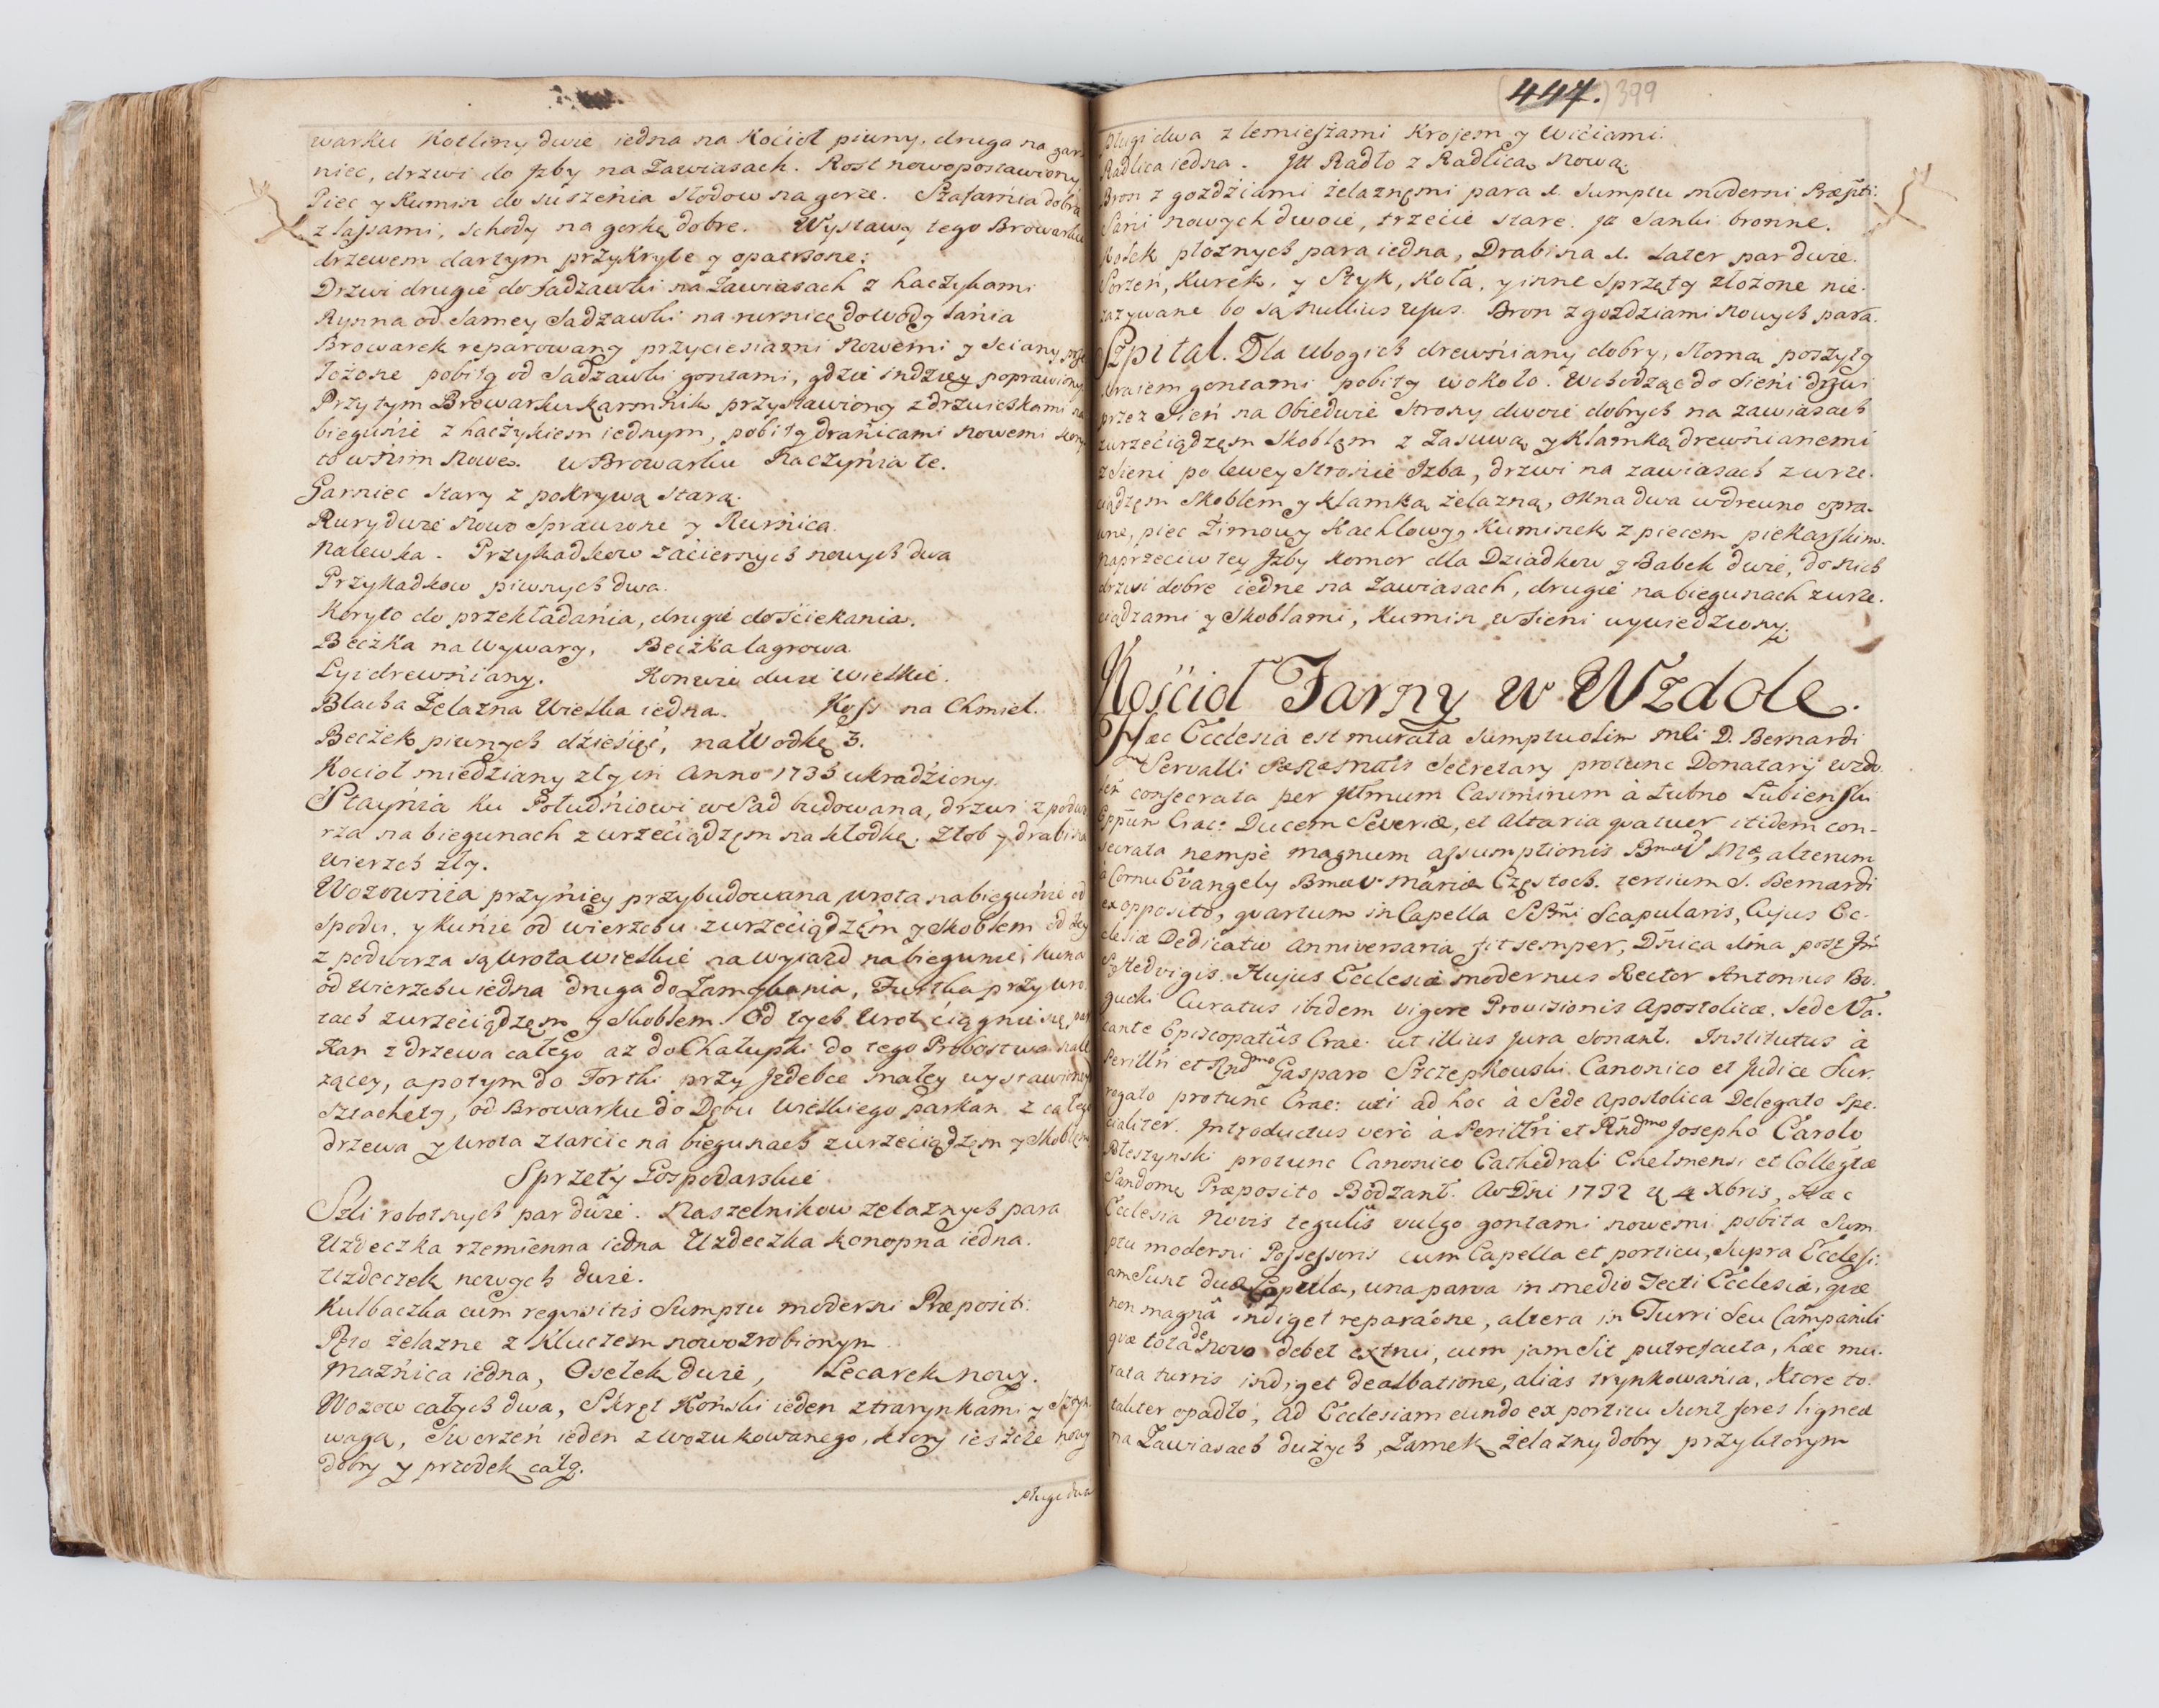 warku Kotliny dwie iedna na Kocioł piwny, druga na gar-
niec, drzwi do Jzby na Zawiasach. Rost nowopostawiony
Piec y Kumin do suszenia słodow na gorze. Szafarnia dobra
z lassami, schody na gorkę dobre. Wystawy tego Browarku
drzewem dartym przykryte y opatrzone:
Drzwi drugie do sadzawki na Zawiasach z haczykami
Rynna od samey Sadzawki na rurnicę do wody łania
Browarek reparowany przyciesiami Nowemi y sciany
pobity od Sadzawki gontami, gdzie indziey poprawiony
Przy tym Browarku karmnik przystawiony z drzwiczkami na
biegunie z haczykiem iednym, pobity dranicami nowemi
to w nim Nowe. w Browarku Naczynia te.
Garniec stary z pokrywą starą.
Rury dwie nowo sprawione y Rurnica.
Nalewka. Przykadkow zaciernych nowych dwa
Przykadkow piwnych dwa.
Koryto do przekładania, drugie do sciekania.
Beczka na wywary, Beczka lagrowa
Lyi drewniany. Konwie dwie wielkie.
Blacha Zelazna Wielka iedna. Koss na Chmiel.
Beczek piwnych dziesięć, na Wodkę 3.
Kocioł miedziany zły in Anno 1735 ukradziony.
Staynia ku Południowi w Sad budowana, drzwi z podwo-
rza na biegunach z wrzeciądzęm na kłodkę. Złob y drabina
Wierzch zły.
Wozownia przy niey przybudowana wrota na biegunie od
spodu, y kunie od wierzchu z wrzeciądzem y skoblem od tey
z podworza są Wrota Wielkie na wyiazd na biegunie, kuna
od Wierzchu iedna druga do Zamykania, Furtka przy wro-
tach z wrzeciądzem y skoblem. Od tych Wrot ciągnie się par
kan z drzewa całego az do Chałupki do tego Probostwa nale
zącey, a potym do Fortki przy Jzdebce małey wystawiony
sztachety, od Browarku do Dębu Wielkiego parkan z całego
drzewa y Wrota z tarcic na biegunach z wrzeciądzem y skoblem
Sprzęty Gospodarskie
Szli robotnych par dwie. Naszelnikow zelaznych para
Uzdeczka rzemienna iedna Uzdeczka konopna iedna.
Uzdeczek nowych dwie.
Kulbaczka cum requisitis Sumptu moderni Præpositi.
Pęto żelazne z Kluczem nowozrobionym
Maznica iedna, Osełek dwie, Lecarek nowy.
Wozow całych dwa, Skręt Koński ieden z trarynkami y
wagą, Sworzeń ieden z wozu kowanego, ktory ieszcze nowy
dobry y przodek cały.
Pługi dwa
447. 399
Pługi dwa z lemieszami Krojem y Wiciami.
Radlica iedna. Jtt Radło z Radlicą Nową.
Bron z gozdziami żelaznęmi para 1. Sumptu moderni Præpti:
Sani nowych dwoie, trzecie stare. Jtt Sanki bronne.
Kolek płoznych para iedna, Drabina 1. Later par dwie.
Sorzeń, Kurek, y Sztyk, Koła, y inne Sprzęty złożone nie-
zazywane bo są nullius usus. Bron z gozdziami Nowych para.
Szpital. Dla Ubogich drewniany dobry, słomą poszyty
kraiem gontami pobity wokoło. Wchodząc do Sieni drzwi
przez Sień na Obiedwie strony dwoie dobrych na zawiasach
z wrzeciądzęm Skoblęm z Zasuwą y Klamką drewnianemi
z Sieni po lewey stronie Jzba, drzwi na zawiasach z wrze-
ciądzęm Skoblem y klamką żelazną, okna dwa w drewno opra-
wne, piec Zimowy Kachlowy, Kuminek z piecem piekarskim.
Naprzeciw tey Jzby Komor dla Dziadkow y Babek dwie, do nich
drzwi dobre iedne na Zawiasach, drugie na biegunach z wrze-
ciądzami y Skoblami, Kumin w Sieni wywiedziony.
Kościoł Farny w Wzdole.
Hæc Ecclesia est murata sumptu olim Mli D. Bernardi
Servalli Secretary protunc Donatary Wzdo-
len consecrata per Jllmum Casimirum à Łubno Łubienski
Eppum Crac: Ducem Severiæ, et Altaria quatuor itidem con-
secrata nempè magnum Assumptionis Bmæ V Mæ, alterum
à Cornu Evangely Bmæ V. Mariæ Częstoch. tertium S. Bernardi
ex opposito, quartum in Capella SSmi Scapularis, Cujus Ec-
clesiæ Dedicatio Anniversaria fit semper, Dnica ima post Fm
S. Hedvigis. Hujus Ecclesiæ modernus Rector Antonius Bo-
gucki Curatus ibidem vigore Provisionis Apostolicæ, Sede Va-
cante Episcopatûs Crac. ut illius jura sonant. Institutus à
Perillri et Rndmo Gasparo Szczepkowski Canonico et Judice Sur-
rogato protunc Crac: uti ad hoc à Sede Apostolica Delegato Spe-
cialiter. Jntroductus verò à Perillri et Rndmo Josepho Carolo
Pleszynski protunc Canonico Cathedrali Chelmensi et Collegtæ
Sandomę Præposito Bodzant. Ao Dni 1732 4 Xbris, Hæc
Ecclesia Novis tegulis vulgo gontami nowemi pobita Sum-
ptu moderni Possessoris cum Capella et porticu, Supra Ecclesi-
am Sunt duæ Cupulæ, una parva in medio Tecti Ecclesiæ, quæ
non magnâ indiget reparaône, altera in Turri Seu Campanili
quæ tota de novo debet extrui, cum jam Sit putrefacta, hæc mu-
rata turris indiget dealbatione, aliàs trynkowania, Ktore to-
taliter opadło, Ad Ecclesiam eundo ex porticu Sunt fores ligneæ
na Zawiasach dużych, Zamek żelazny dobry przy ktorym